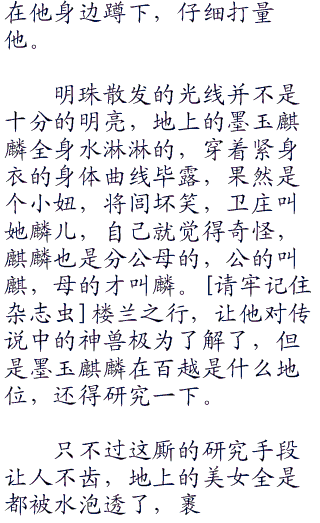 在他身边蹲下，仔细打量
他。
明珠散发的光线并不是
十分的明亮，地上的墨玉麒
麟全身水淋淋的，穿着紧身
衣的身体曲线毕露，果然是
个小妞，将闾坏笑，卫庄叫
她麟儿，自己就觉得奇怪，
麒麟也是分公母的，公的叫
麒，母的才叫麟。[请牢记住
杂志虫]楼兰之行，让他对传
说中的神兽极为了解了，但
是墨玉麒麟在百越是什么地
位，还得研究一下。
只不过这厮的研究手段
让人不齿，地上的美女全是
都被水泡透了，裹